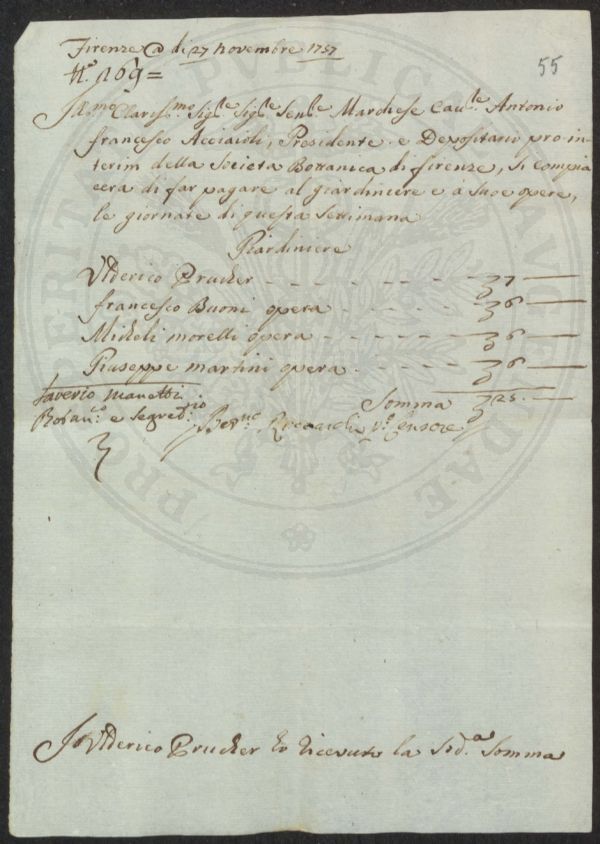 Firenze @ di 27 novembre 1757
55
N.º 169=
Ill.mo Clariss.mo Sig.re Sig.re Sen.re Marchese Cau.re Antonio
francesco Acciaioli, Presidente e Depositario pro in-
terim della Societa Bottanica di firenze, si compia
cera di far pagare al giardiniere e a sue opere,
le giornate di questa Settimana
Giardiniere
Ulderico Prucker 7
francesco Buoni opera 6
Micheli morelli opera 6
Giuseppe martini opera 6
Somma 25.
Saverio Manetti
Botan.º e Segret.rio
P.º Censore
Io Ulderico Prucker ho riceuuto la Sud.a Somma
PRO VERITATE PUBLICA AUGENDAE